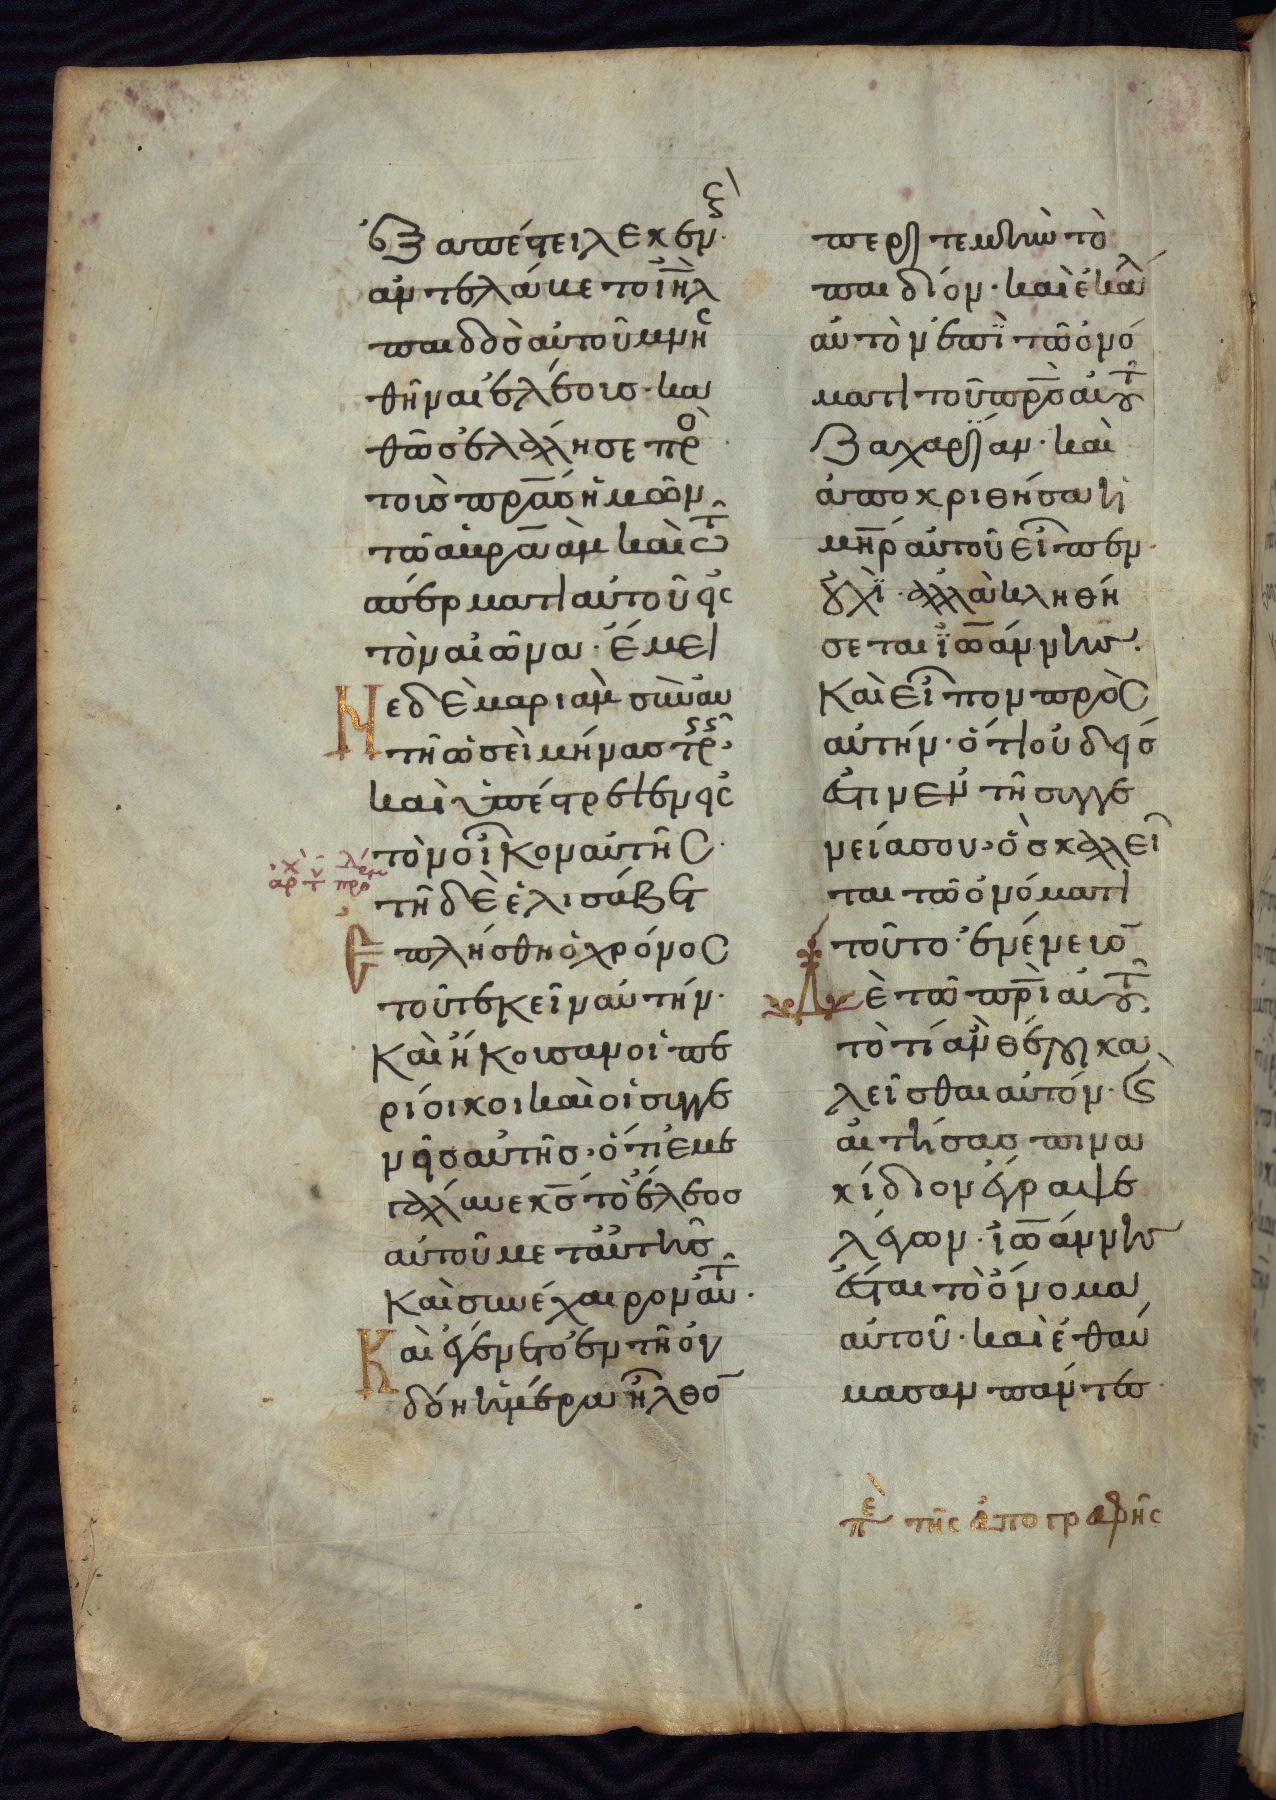 ἐξαπέστειλε κενούς
ἀντελάβετο ἰηλ
παιδὸς αὐτοῦ μνησ
θῆναι ἐλέους· κα
θὼς ἐλάλησε πρὸ
τοὺς πρας ἡμῶν,
τῶ ἀβραὰμ καὶ τῶ
σπέρματι αὐτοῦ ἕως
τὸν αἰῶνα· ἔμει
Νε δὲ μαριὰμ σὺν αυ
τῆ ὡσεὶ μήνας τρεῖς·
καὶ ὑπέστρεψεν εἰς
τὸν οἶκον αὐτῆς·
τῆ δὲ ἐλισάβετ
Ἐπλήσθη ὁ χρόνος
τοῦ τεκεῖν αὐτήν·
καὶ ἤκουσαν οἱ πε
ρίοικοι καὶ οἱ συγγε
νεῖς αὐτῆς· ὅτι ἐμε
γάλυνε κς τὸ ἔλεος
αὐτοῦ μετ' αὐτῆς
καὶ συνέχαιρον αὐτῆ·
Καὶ ἐγένετο ἐν τῆ ὀγ
δόη ἡμέρα ἦλθον
περιτεμεῖν τὸ
παιδίον· καὶ ἐκάλ
αὐτὸν ἐπὶ τῶ ὀνό
ματι τοῦ πρς αὐτοῦ
ζαχαρίαν· καὶ
ἀποκριθήσα ἡ
μηρ αὐτοῦ εἶπεν·
οὐχὶ· ἀλλὰ κληθή
σεται ἰωάννης.
καὶ εἶπον πρὸς
αὐτήν· ὅτι οὐδείς
ἐστιν ἐν τῆ συγγε
νεία σου· ὃς καλεῖ
ται τῶ ὀνόματι
τούτω· ἐνένευον
Δὲ τῶ πρι αὐτοῦ,
τὸ τί ἂν θέλοι κα
λεῖσθαι αὐτόν· καὶ
αἰτήσας πινα
κίδιον ἔγραψε
λέγων· ἰωάννης
ἔσται τὸ ὄνομα
αὐτοῦ· καὶ ἐθαύ
μασαν πάντες·
πε τῆς ἀπογραφῆς